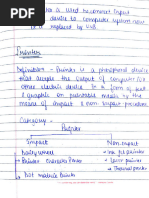 is used to connect Input
device to computer system now
is replaced by USB
Printer
Definition - Printer is a peripheral device
that accepts the output of computer or
other electric device in a form of text
& graphic on printable media by the
means of impact & non impact process
Category -
Printer
Impact
Non-impact
Daisywheel
Ink jet printer
Printer
Laser printer
Thermal printer
Dot matrix printer